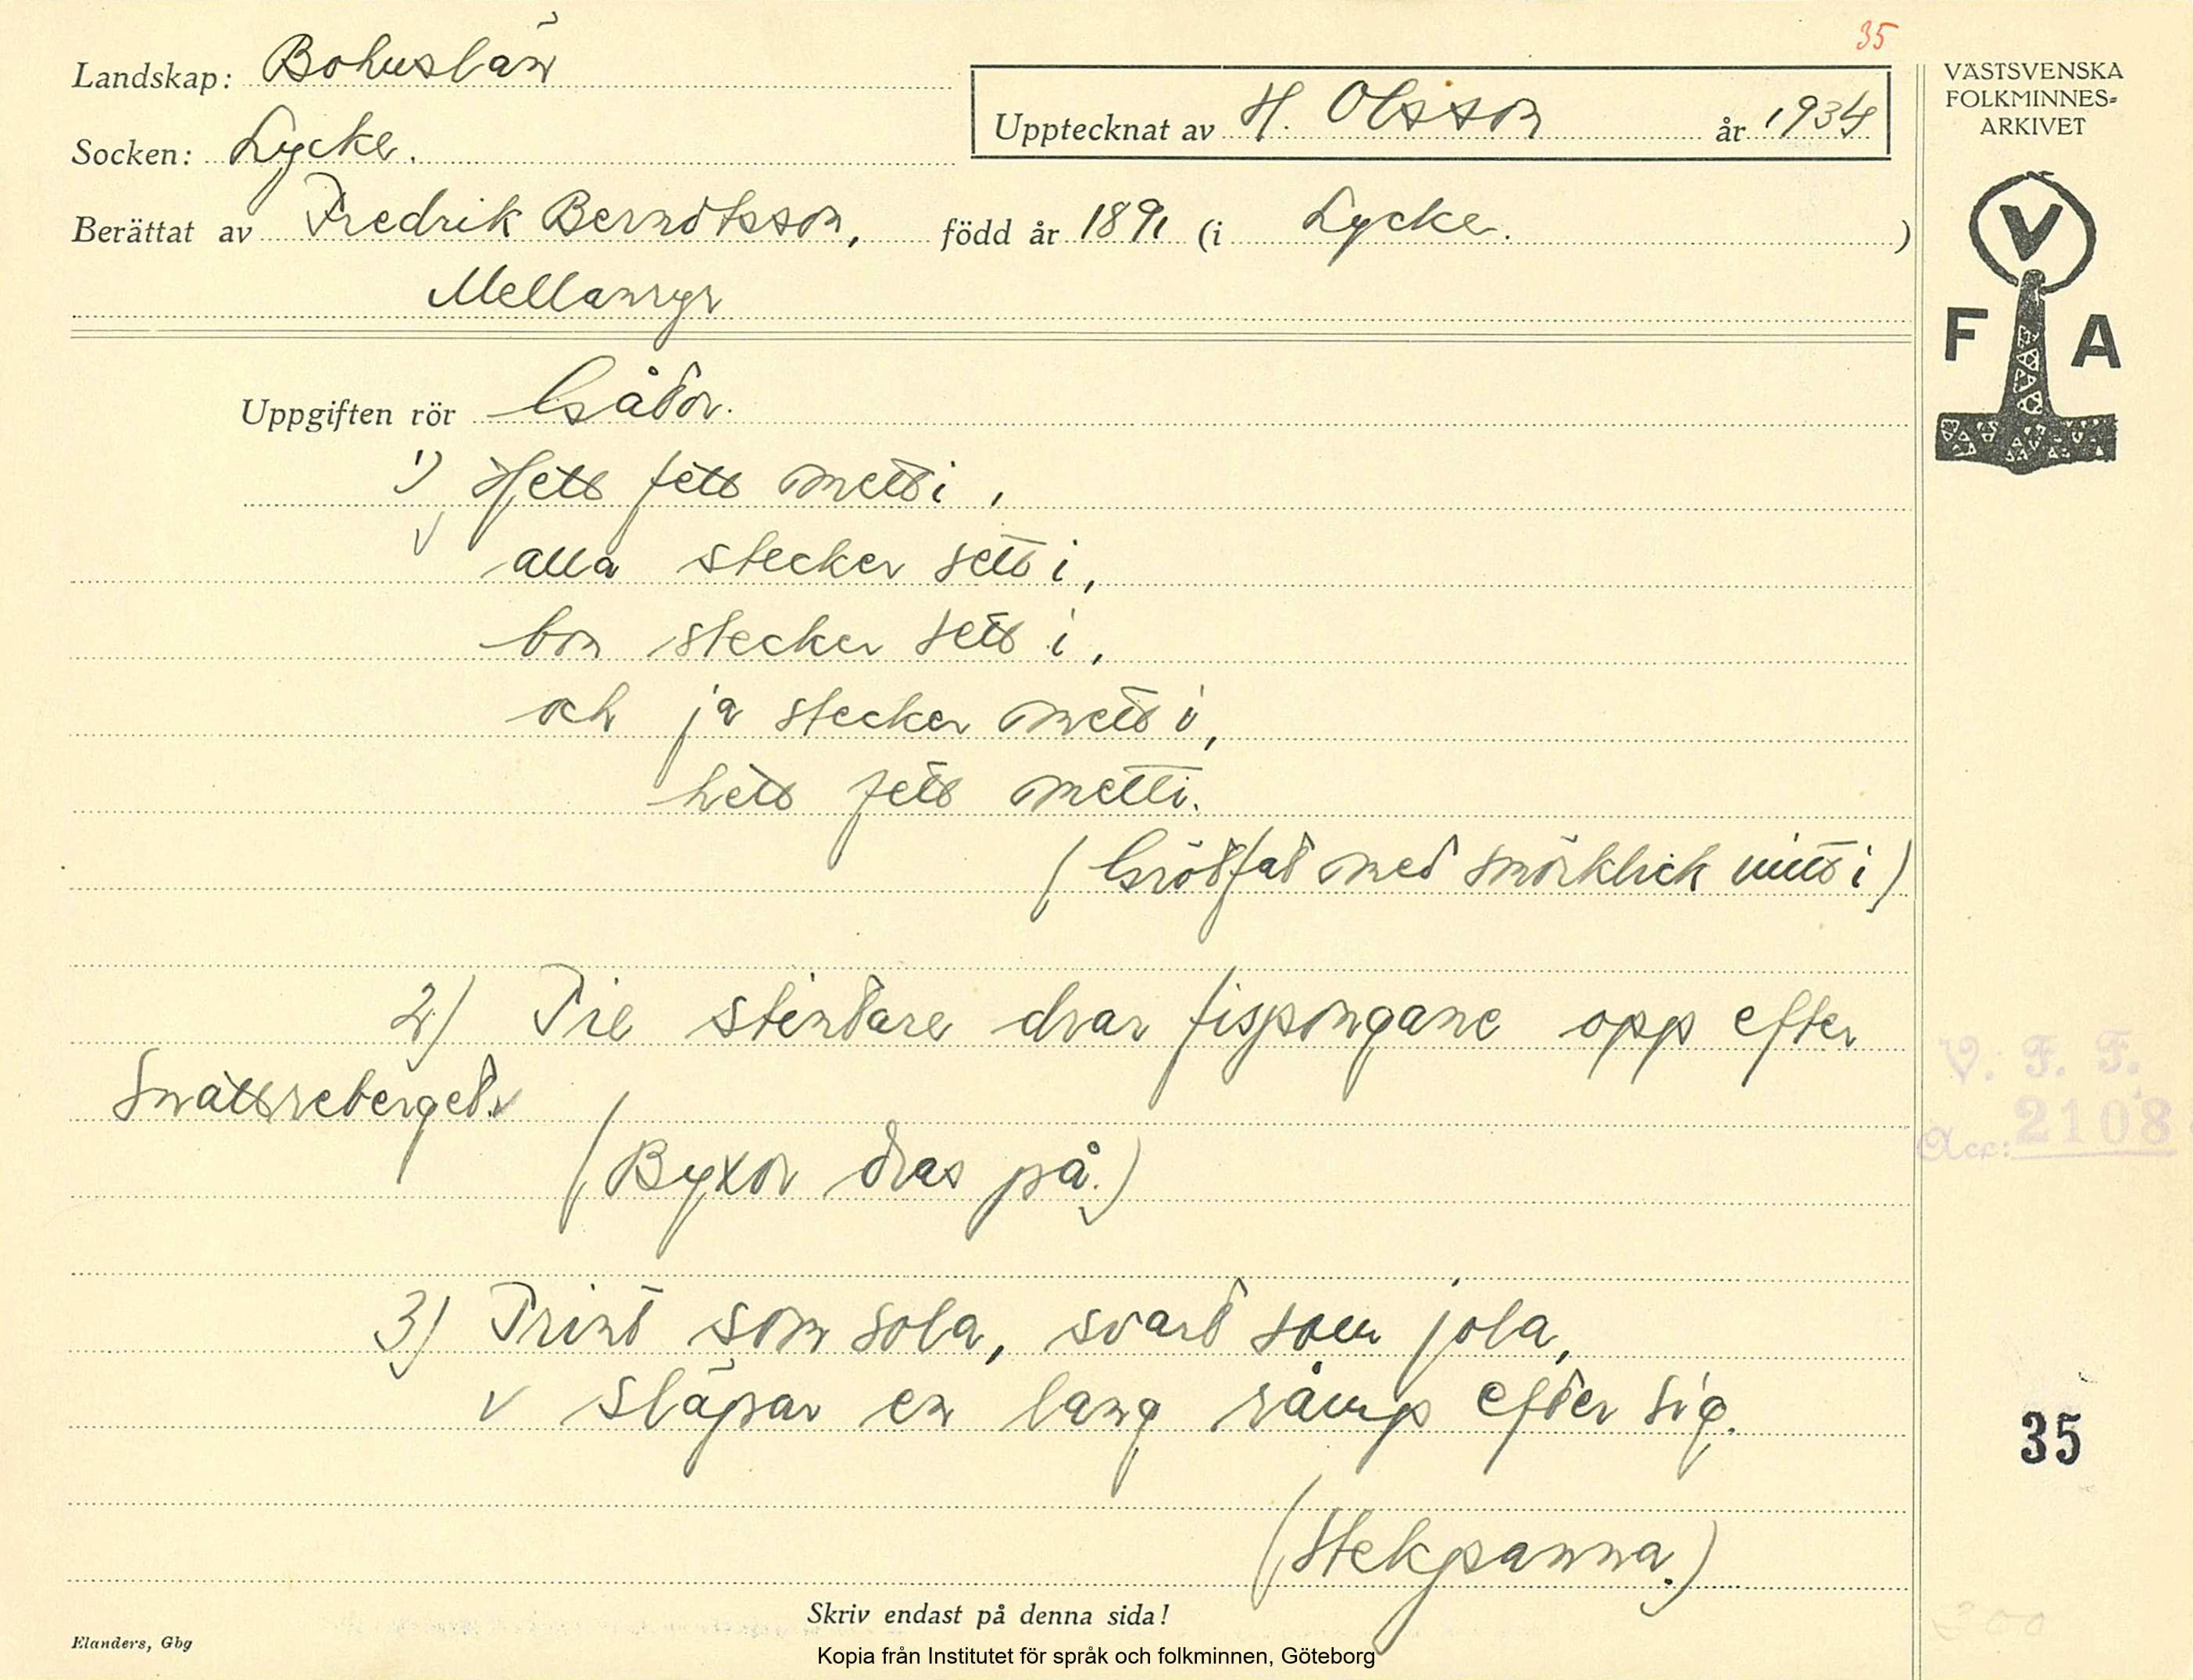 35
Landskap: Bohuslän
Upptecknat av H. Olsson år 1934
Socken: Lycke.
Berättat av Fredrik Berndtsson, född år 1891 (i Lycke.)
Mellanryr
VÄSTSVENSKA
FOLKMINNES=
ARKIVET
V
F A
Uppgiften rör Gåtor.
1) Hett fett metti,
alla stecker sett i,
bon stecker sett i,
och ja stecker mett i,
hett fett metti.
(Grötfat med smörklick mitt i)
2) Tie stintare drar fispongane opp efter
Snattreberget.
(Byxor dras på.)
3) Trint som sola, svart som jola,
släpar en lang råmp efter sig.
(Stekpanna.)
V. F. F.
Acc: 2108
35
300
Skriv endast på denna sida!
Elanders, Gbg
Kopia från Institutet för språk och folkminnen, Göteborg